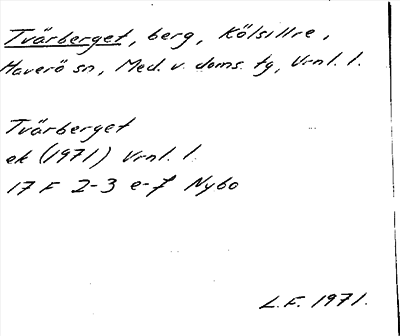 Tvärberget, berg, Kölsillre,
Haverö sn, Med. v. doms. tg, Vrnl. l.
Tvärberget
ek (1971) Vrnl. l.
17 F 2-3 e-f Nybo
L.F. 1971.